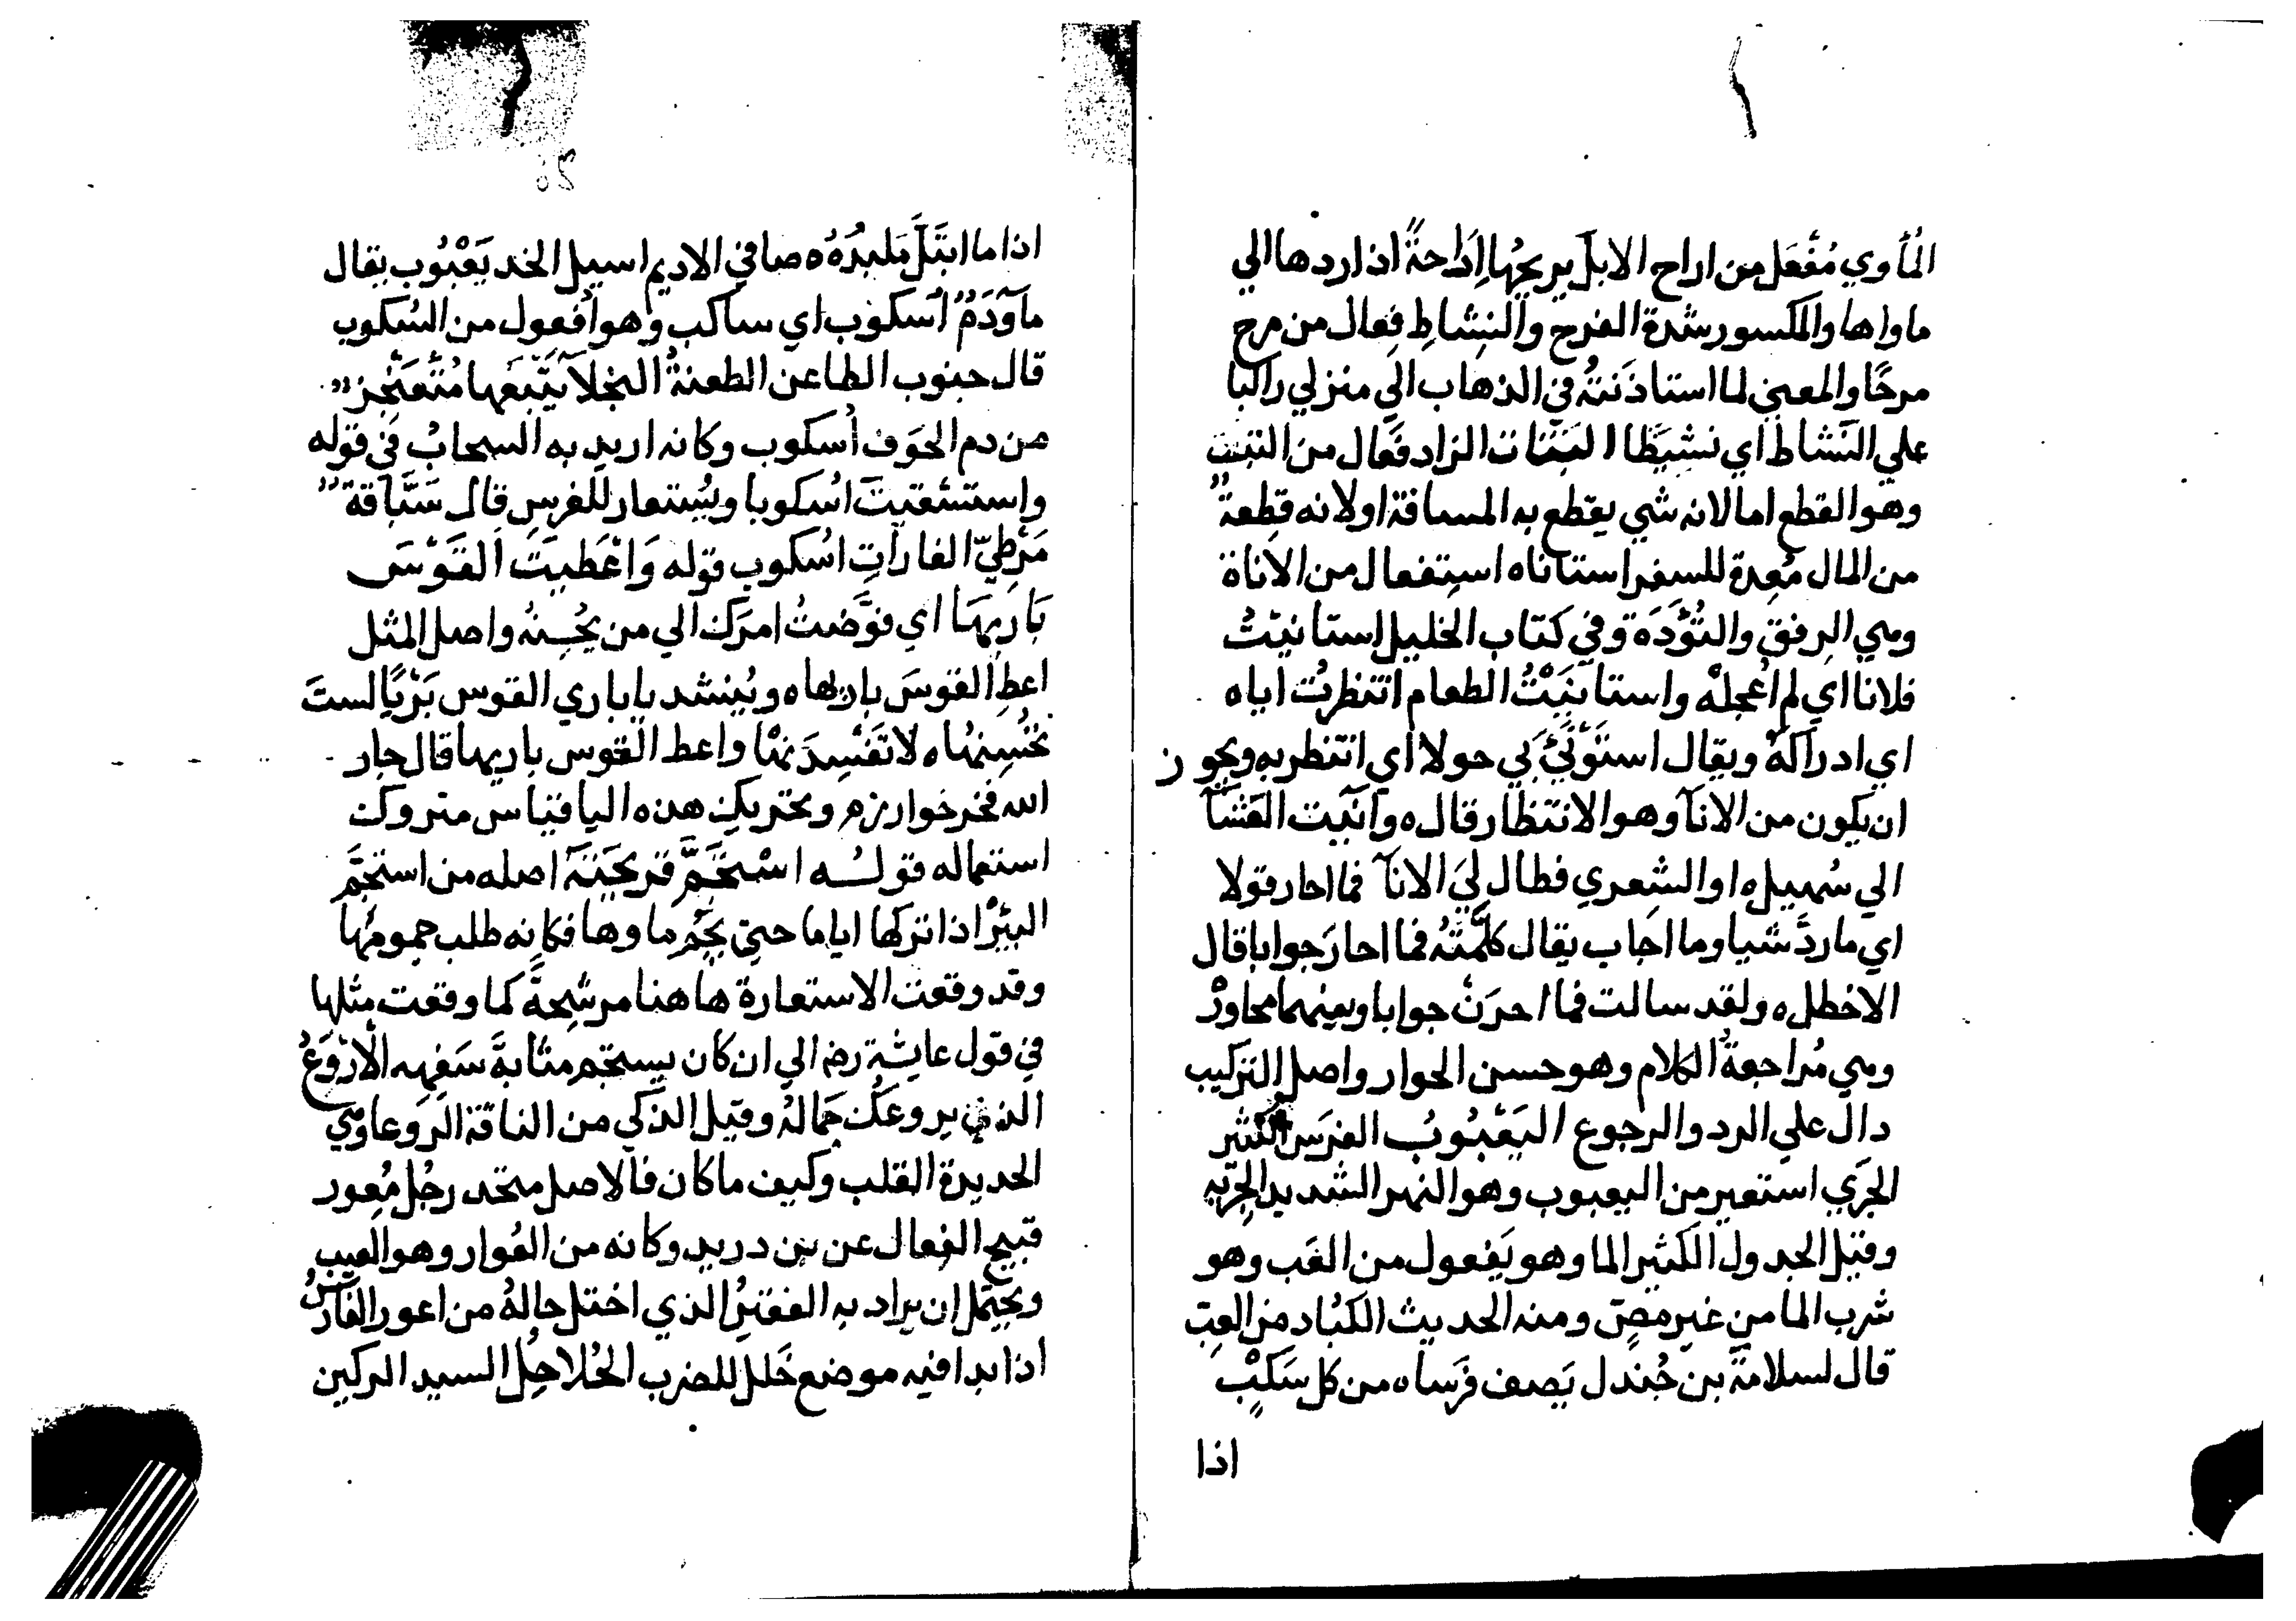 المأوي مُفْعَل من اراح الابل يريحُها إراحةً اذا ردها الي
ماواها والمكسور شدة الفرح والنشاط فِعال من مرح
مرحًا والمعني لما استاذنتُه في الذهاب الي منزلي راكبا
علي النشاط اي نشيطًا البتات الزاد فَعال من البتت
وهو القطع اما لانه شي يقطع به المسافة او لانه قطعة
من المال مُعِدة للسفر استاناه استفعال من الاناة
وهي الرفق والتُؤَدَة وفي كتاب الخليل استانيتُ
فلانا اي لم اُعجله واستانَيْتُ الطعام انتظرتُ اياه
اي ادراكَهُ ويقال استُؤنِيَ بي حولا اي انتظر به ويجوز
ان يكون من الانآ وهو الانتظار قال ه وآنَيت العَشآ
الي سُهيل ه او الشِعري فطال لِيَ الانآ فما احار قولا
اي ما ردَّ شيا وما اجاب يقال كلَّمتُه فما احارَ جوابا قال
الاخطل ه ولقد سالت فما احرَن جوابا وبينهما محاورة
وهي مُراجعةُ الكلام وهو حسن الحوار واصل التركيب
دال علي الرد والرجوع اليَعْبُوبُ الفرَس الكثير
الجَري استعير من اليعبوب وهو النهر الشديد الجِرية
وقيل الجدول الكثير الما وهو يَفعول من العَب وهو
شرب الما من غير مصٍّ ومنه الحديث الكُباد من العبّ
قال لسلامة بن جُندل يَصف فَرَسا ه من كل سَكْبٍ
اذا
اذا ما ابتَلَّ مَلبدُهُ ه صافي الاديم اسيل الخد يَعْبُوب يقال
مآ ودَمٌ اُسكوب اي ساكب وهو اُفعول من السُكوب
قال جنوب الطاعن الطعنةُ النجلآ يَتبَعها مُثْعَنْجِر
من دم الجَوف اُسكوب وكانه اريد به السحابُ في قوله
واستشقيتَ اُسكوبا ويُستعار للفرس قال سَبَّاقة
مَرَطيّ الغاراتِ اسكوب قوله وَاعْطيتَ القَوْسَ
بَاريهَا اي فوَّضتُ امرَك الي من يُحْسِنُه واصل المثل
اعطِ القوسَ باريها ه ويُنشد يا باري القوس بَرْيًا لستَ
تُحْسِنهُا ه لا تَفْسِدَنها واعط القوس باريها قال جار
الله فخر خوارزم وتحريك هذه اليا قياس متروك
استعماله قولُـه اسْتَجَمَّ قريحَتَهَ اصله من استجَمَّ
البئرَ اذا تركها اياما حتي يَجُمَّ ماوها فكانه طلب جمومَها
وقد وقعت الاستعارة هاهنا مرشحةً كما وقعت مثلها
في قول عايشة رضـ الي ان كان يستجم مثابةَ سَفهِه الاَرْوَعُ
الذي يروعُك جمَالهُ وقيل الذكي من الناقة الروعا وهي
الحديدة القلب وكيف ما كان فالاصل متحد رجُل مُعور
قبيح الفِعال عن بن دريد وكانه من العُوار وهو العيب
ويحتمل ان يراد به الفقيرُ الذي اختل حالهُ من اعور الفارسُ
اذا بدا فيه موضع خَلل للضرب الحُلاحِلُ السيد الركين